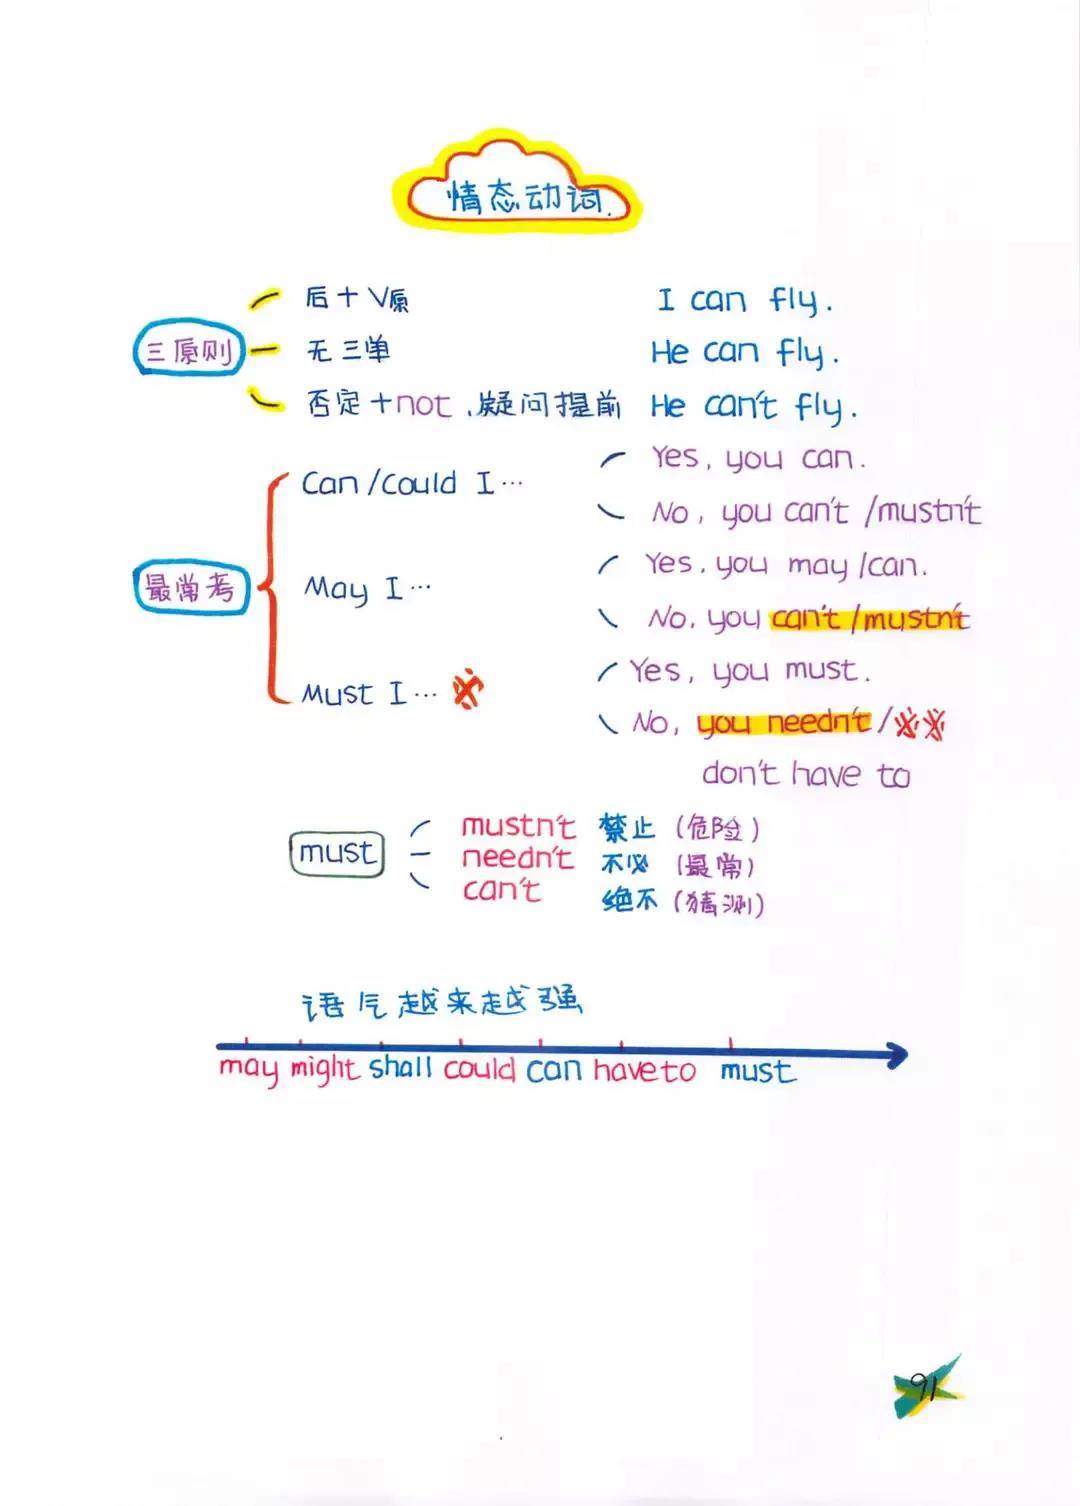 情态动词.
三原则
后＋V原 I can fly.
无三单 He can fly.
否定＋not、疑问提前 He can't fly.
最常考
Can/could I… Yes, you can.
No, you can't/mustn't
May I… Yes, you may/can.
No, you can't/mustn't
Must I… ※ Yes, you must.
No, you needn't/※※
don't have to
must
mustn't 禁止（危险）
needn't 不必（最常）
can't 绝不（猜测）
语气越来越强
may might shall could can have to must
91